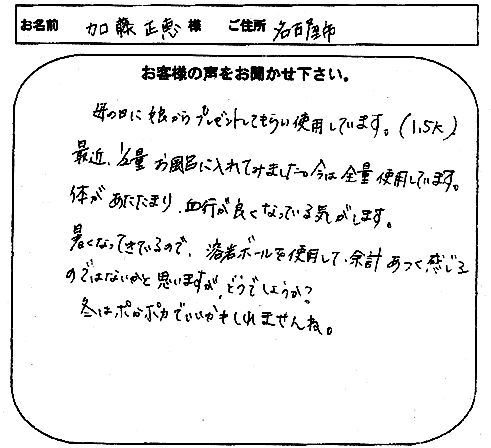 お名前 加藤正恵 様 ご住所 名古屋市
お客様の声をお聞かせ下さい。
母の日に娘からプレゼントしてもらい使用しています。(1.5K)
最近、1/2量お風呂に入れてみました。今は全量使用しています。
体があたたまり、血行が良くなっている気がします。
暑くなってきているので、溶岩ボールを使用して、余計あつく感じる
のではないかと思いますが、どうでしょうか?
冬はポカポカでいいかもしれませんね。